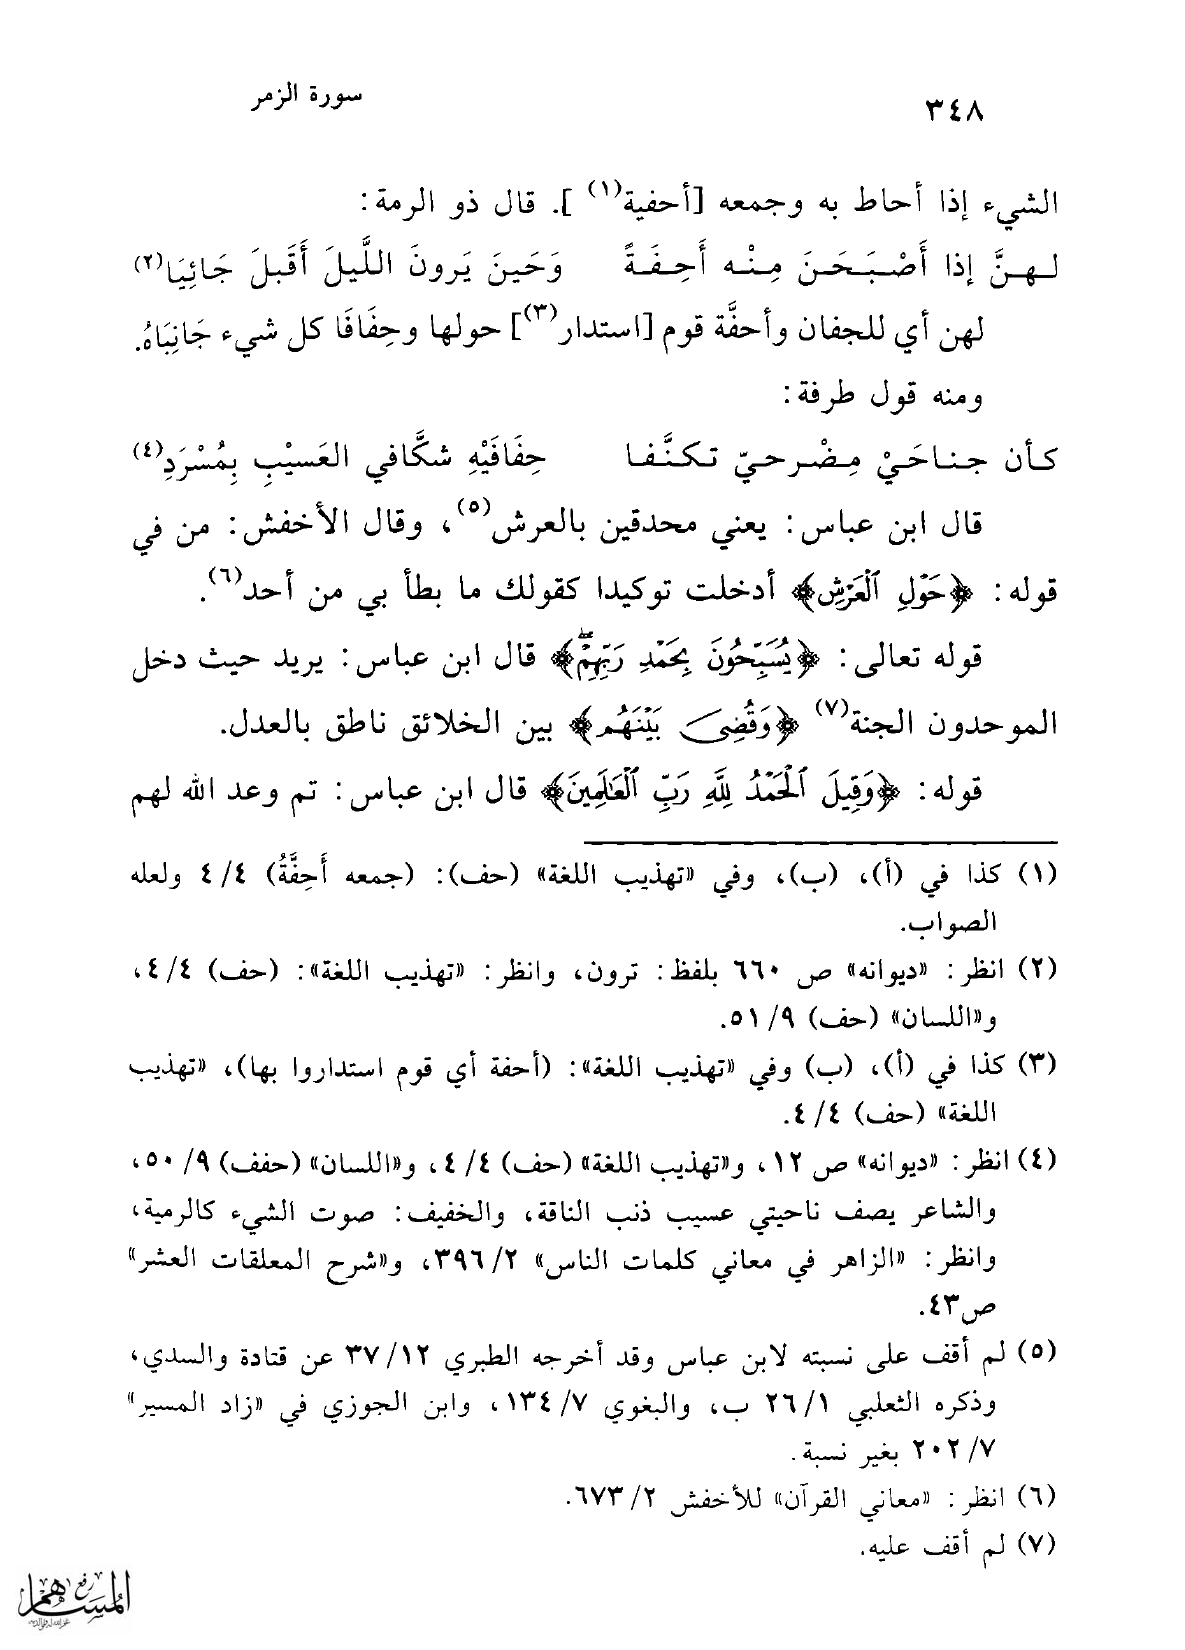 ٣٤٨
سورة الزمر
الشيء إذا أحاط به وجمعه [أحفية(١) ]. قال ذو الرمة:
لهـنَّ إذا أَصْـبَـحَـنَ مِـنْـه أَحِـفَـةً وَحَينَ يَرونَ اللَّيلَ أَقَبلَ جَائِيَا(٢)
لهن أي للجفان وأحفَّة قوم [استدار(٣)] حولها وحِفَافَا كل شيء جَانِبَاهُ.
ومنه قول طرفة:
كـأن جـنـاحَـيْ مِـضْـرحـيّ تـكـنَّـفـا حِفَافَيْهِ شكَّافي العَسيْبِ بِمُسْرَدِ(٤)
قال ابن عباس: يعني محدقين بالعرش(٥)، وقال الأخفش: من في
قوله: ﴿حَوْلِ ٱلْعَرْشِ﴾ أدخلت توكيدا كقولك ما بطأ بي من أحد(٦).
قوله تعالى: ﴿يُسَبِّحُونَ بِحَمْدِ رَبِّهِمْۖ﴾ قال ابن عباس: يريد حيث دخل
الموحدون الجنة(٧) ﴿وَقُضِىَ بَيْنَهُم﴾ بين الخلائق ناطق بالعدل.
قوله: ﴿وَقِيلَ ٱلْحَمْدُ لِلَّهِ رَبِّ ٱلْعَـٰلَمِينَ﴾ قال ابن عباس: تم وعد الله لهم
(١) كذا في (أ)، (ب)، وفي «تهذيب اللغة» (حف): (جمعه أَحِفَّةُ) ٤/٤ ولعله
الصواب.
(٢) انظر: «ديوانه» ص ٦٦٠ بلفظ: ترون، وانظر: «تهذيب اللغة»: (حف) ٤/٤،
و«اللسان» (حف) ٥١/٩.
(٣) كذا في (أ)، (ب) وفي «تهذيب اللغة»: (أحفة أي قوم استداروا بها)، «تهذيب
اللغة» (حف) ٤/٤.
(٤) انظر: «ديوانه» ص ١٢، و«تهذيب اللغة» (حف) ٤/٤، و«اللسان» (حفف) ٥٠/٩،
والشاعر يصف ناحيتي عسيب ذنب الناقة، والخفيف: صوت الشيء كالرمية،
وانظر: «الزاهر في معاني كلمات الناس» ٣٩٦/٢، و«شرح المعلقات العشر»
ص٤٣.
(٥) لم أقف على نسبته لابن عباس وقد أخرجه الطبري ٣٧/١٢ عن قتادة والسدي،
وذكره الثعلبي ٢٦/١ ب، والبغوي ١٣٤/٧، وابن الجوزي في «زاد المسير»
٢٠٢/٧ بغير نسبة.
(٦) انظر: «معاني القرآن» للأخفش ٦٧٣/٢.
(٧) لم أقف عليه.